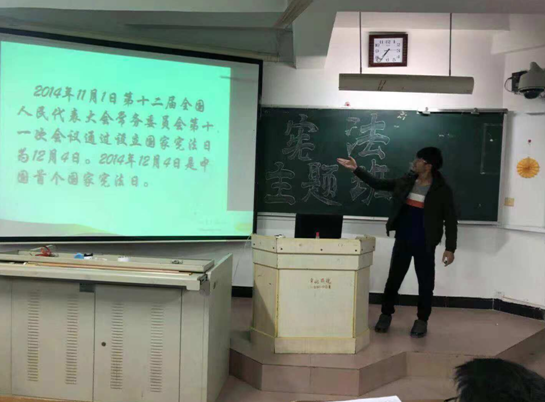 2014年11月1日第十二届全国
人民代表大会常务委员会第十
一次会议通过设立国家宪法日
为12月4日。2014年12月4日是中
国首个国家宪法日。
宪法
主题班